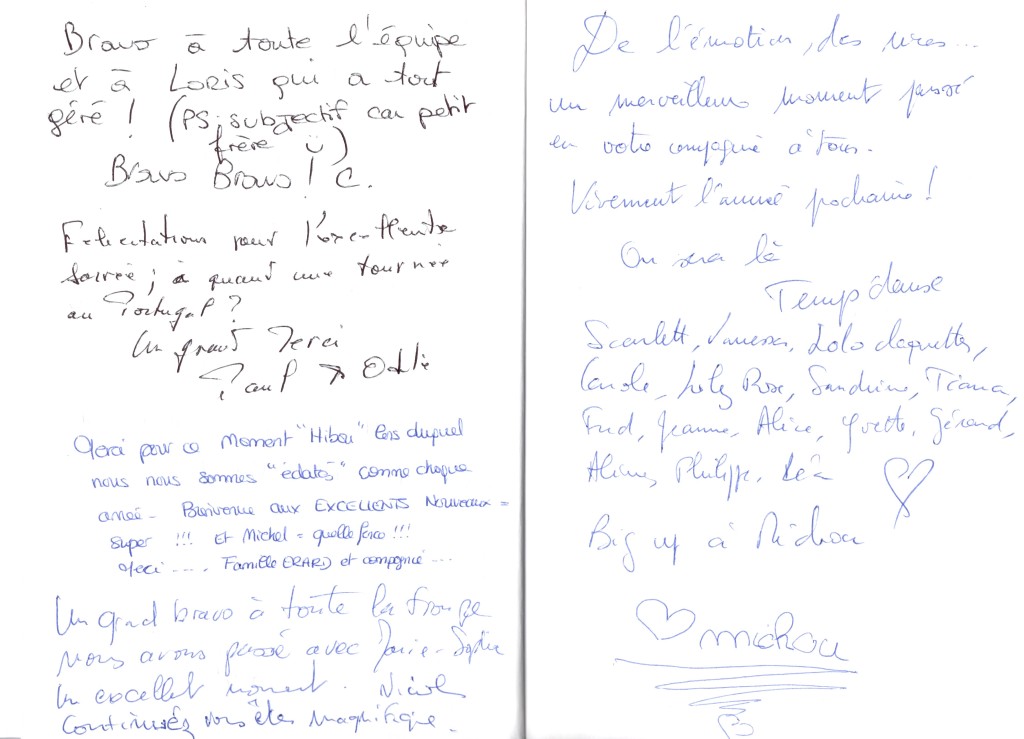 Bravo à toute l'équipe
et à Loris qui a tout
géré ! (PS: subjectif car petit
frère ü)
Bravo Bravo ! C.
Félicitations pour l'excellente
soirée ; à quand une tournée
au Portugal ?
Un grand Merci
Paul Odile
Merci pour ce moment "Hibou" lors duquel
nous nous sommes "éclatés" comme chaque
année - Bienvenue aux EXCELLENTS NOUVEAUX =
super !!! Et Michel = quelle force !!!
Merci ...., Famille ERARD et compagnie ...
Un grand bravo à toute la troupe
Nous avons passé avec Marie-Sophie
Un excellet moment. Nicole
Continuéz vous êtes magnifique.
De l'émotion, des rires...
un merveilleux moment passé
en votre compagnie à tous.
Vivement l'année pochaine !
On sera là
Temps danse
Scarlett, Vanessa, Lolo claquettes,
Carole, Loly Rose, Sandrine, Tiana,
Fred, Jeanne, Alice, Yvette, Gérard,
Aline, Philippe, Léa ♡
Big up à Michou
♡ michou